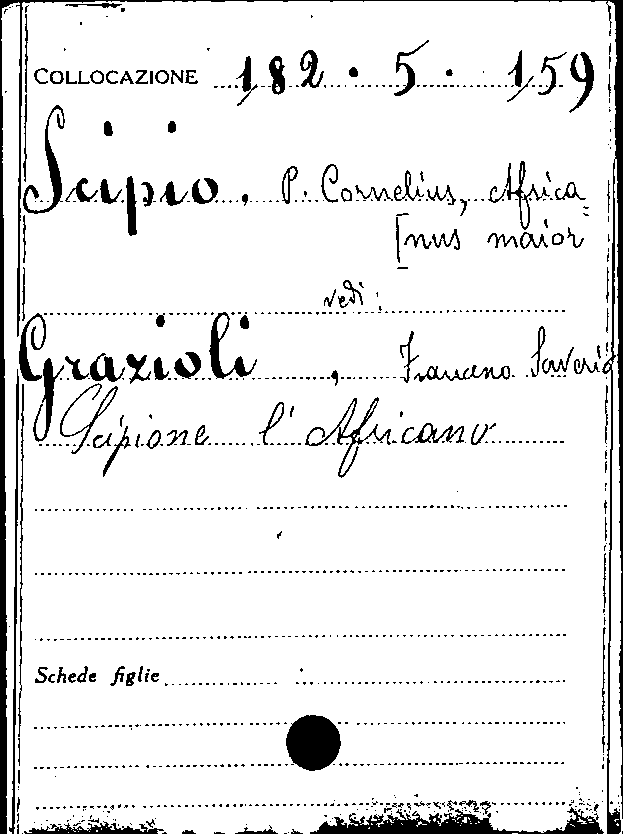 COLLOCAZIONE 182 . 5 . 159
Scipio, P. Cornelius, Africa=
[nus maior
vedi:
Grazioli, Francesco Saverio
Scipione l'Africano
Schede figlie